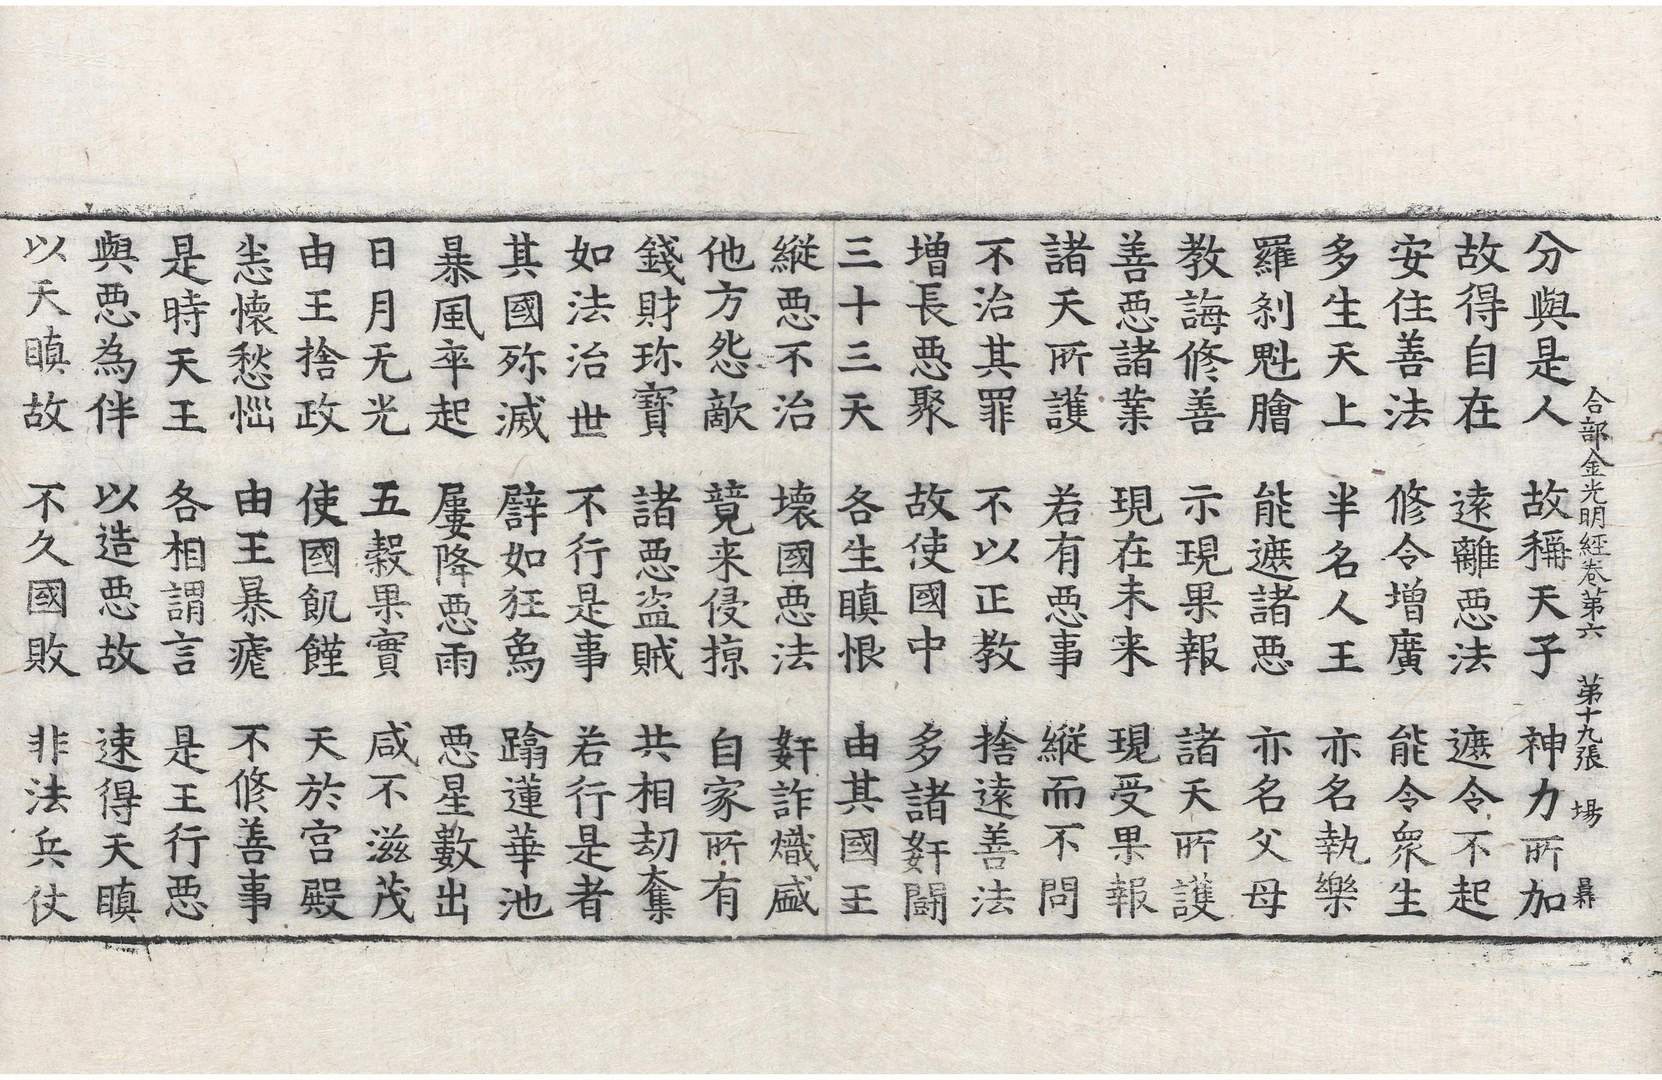 合部金光明經卷第六 第十九張 場
分與是人 故稱天子 神力所加
故得自在 遠離惡法 遮令不起
安住善法 修令增廣 能令衆生
多生天上 半名人王 亦名執樂
羅刹魁膾 能遮諸惡 亦名父母
教誨修善 示現果報 諸天所護
善惡諸業 現在未来 現受果報
諸天所護 若有惡事 縱而不問
不治其罪 不以正教 捨遠善法
增長惡聚 故使國中 多諸姧鬪
三十三天 各生瞋恨 由其國王
縱惡不治 壞國惡法 姧詐熾盛
他方怨敵 競来侵掠 自家所有
錢財珎寶 諸惡盜賊 共相劫奪
如法治世 不行是事 若行是者
其國殄滅 譬如狂象 蹋蓮華池
暴風卒起 屢降惡雨 惡星數出
日月无光 五穀果實 咸不滋茂
由王捨政 使國飢饉 天於宮殿
悉懷愁惱 由王暴虐 不修善事
是時天王 各相謂言 是王行惡
與惡為伴 以造惡故 速得天瞋
以天瞋故 不久國敗 非法兵仗